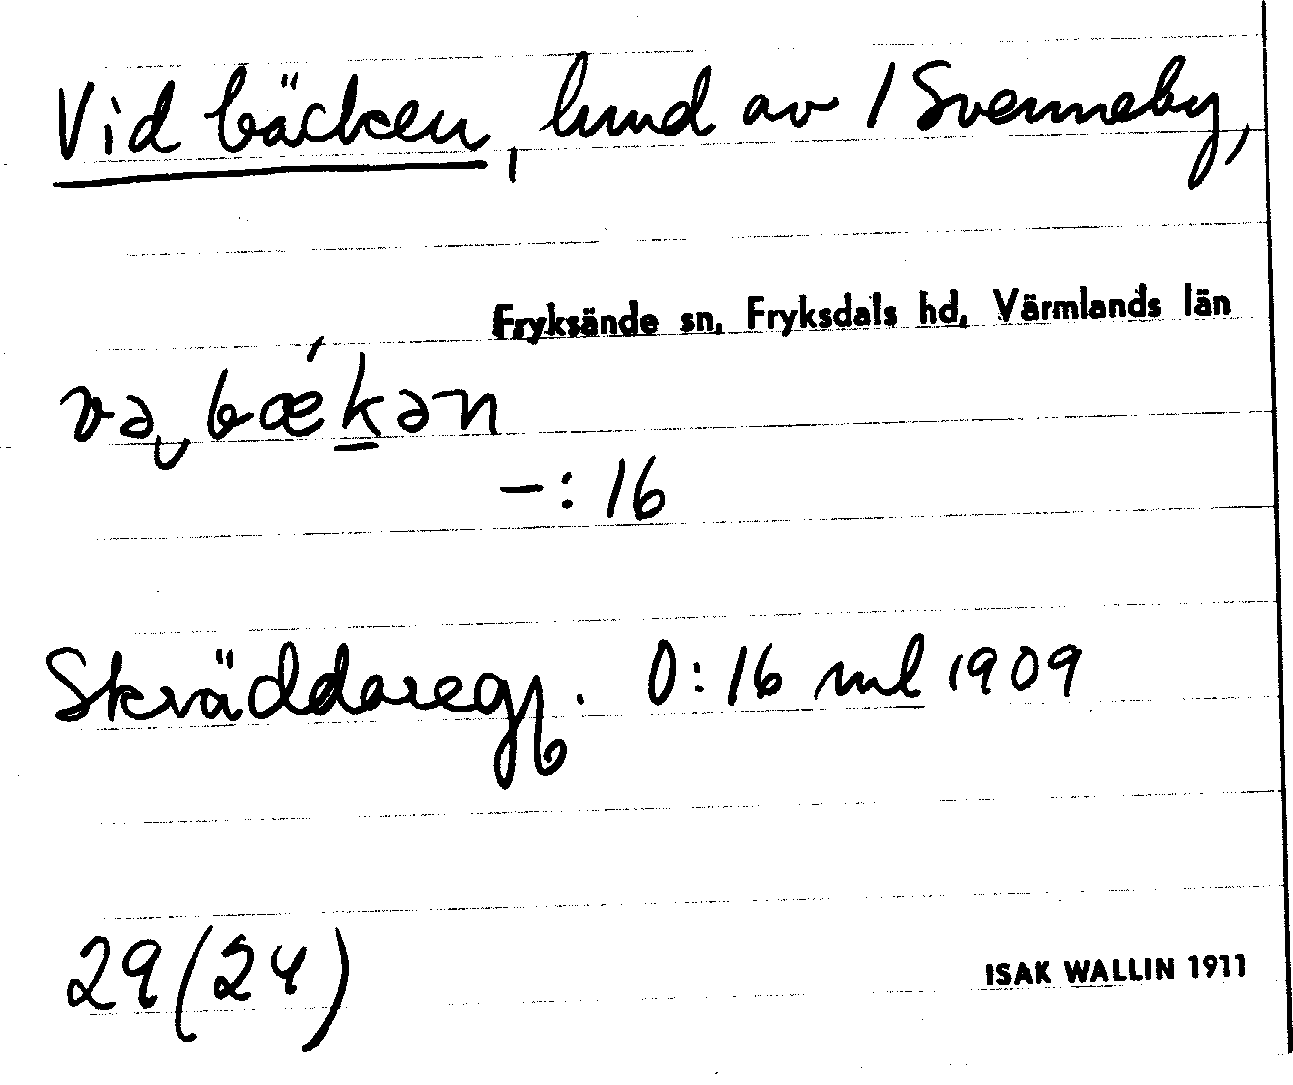 Vid bäcken, lund av 1 Svenneby,
Fryksände sn, Fryksdals hd, Värmlands län
və bǽkən
–: 16
Skräddaregg. 0:16 ml 1909
29(24)
ISAK WALLIN 1911